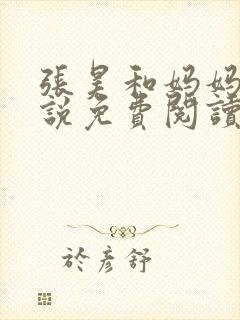 張昊和媽媽
說免費閱讀
於彥舒